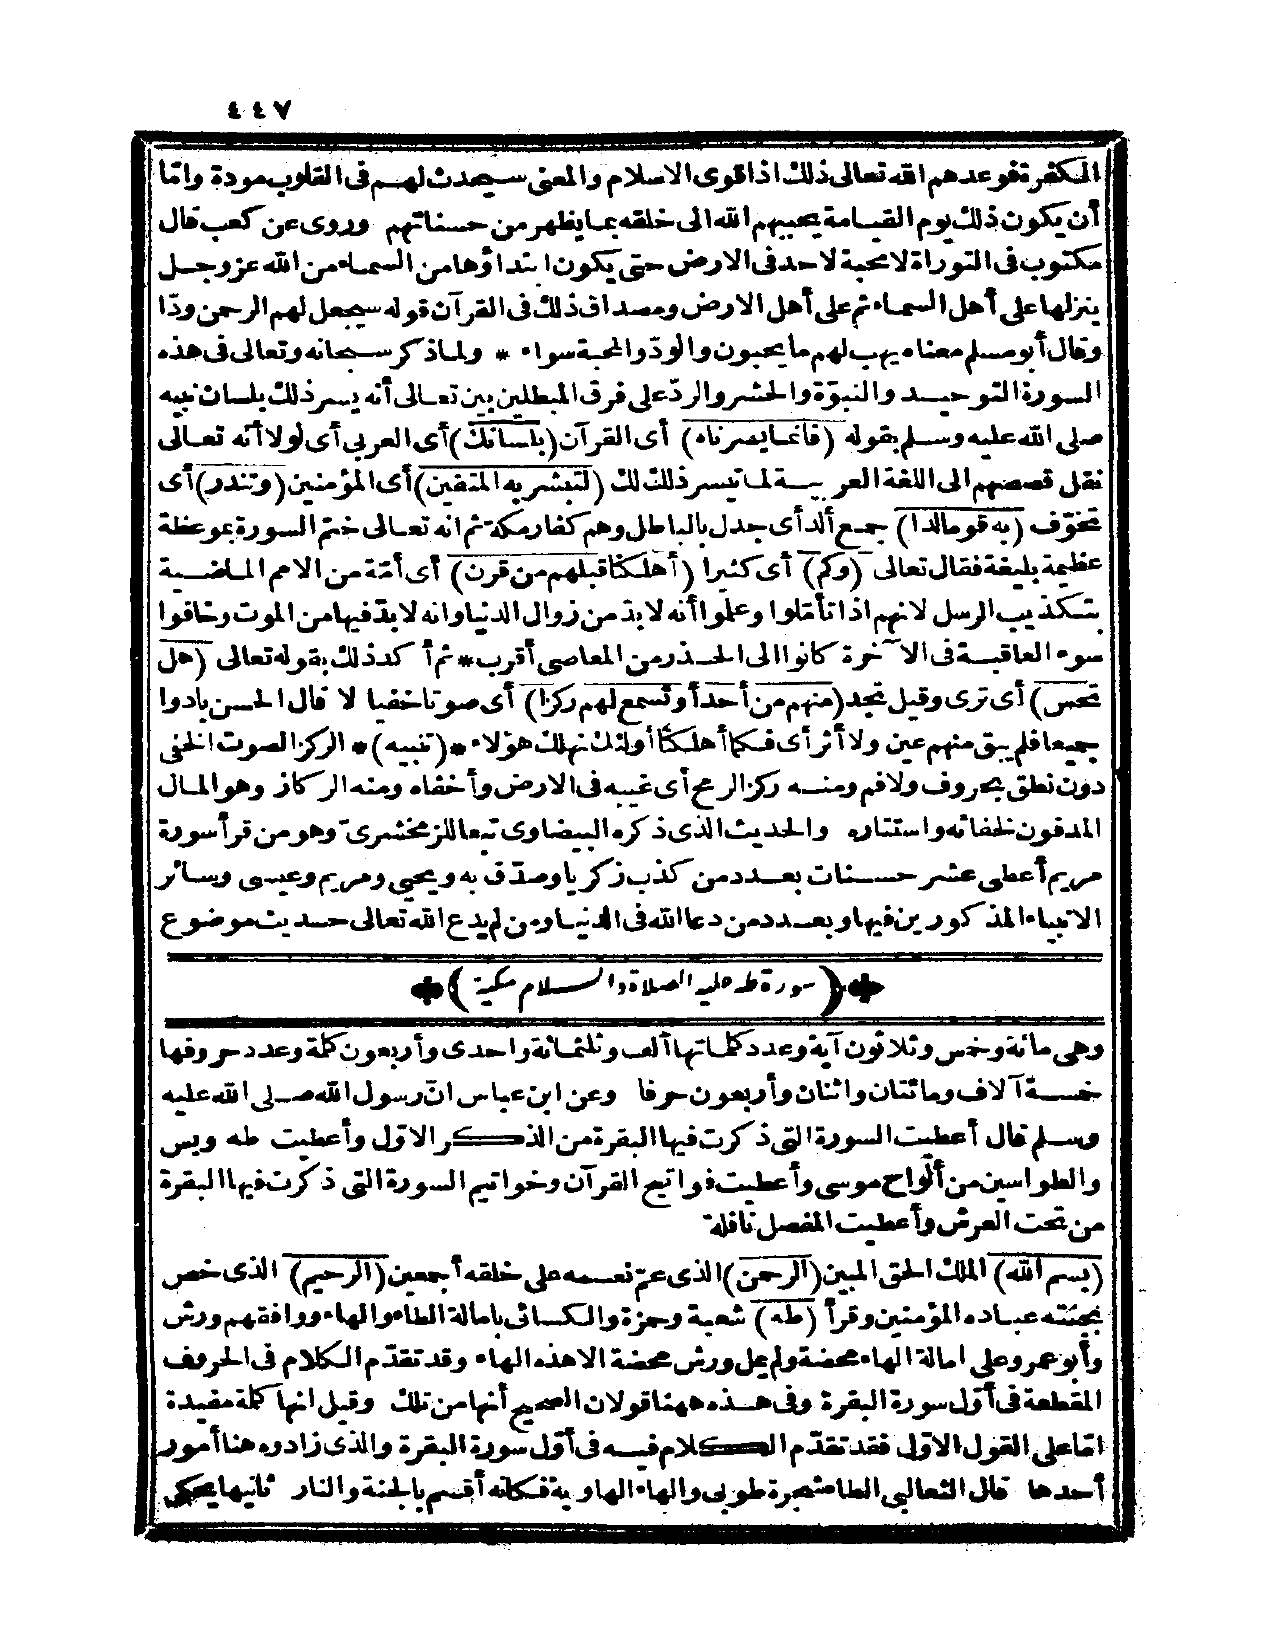 ٤٤٧
الكفرة فوعدهم الله تعالى ذلك اذا قوى الاسلام والمعنى سيحدث لهم فى القلوب مودة وامّا
أن يكون ذلك يوم القيامة يحببهم الله الى خلقه بما يظهر من حسناتهم وروى عن كعب قال
مكتوب فى التوراة لا محبة لاحد فى الارض حتى يكون ابتداؤها من السماء من الله عز وجل
ينزلها على أهل السماء ثم على أهل الارض ومصداق ذلك فى القرآن قوله سيجعل لهم الرحمن ودّا
وقال أبو مسلم معناه يهب لهم ما يحبون والودّ والمحبة سواء * ولما ذكر سبحانه وتعالى فى هذه
السورة التوحيد والنبوّة والحشر والردّ على فرق المبطلين بين تعالى أنه يسر ذلك بلسان نبيه
صلى الله عليه وسلم بقوله (فانما يسرناه) أى القرآن (بلسانك) أى العربى أى لولا أنه تعالى
نقل قصصهم الى اللغة العربية لما تيسر ذلك لك (لتبشر به المتقين) أى المؤمنين (وتنذر) أى
تخوّف (به قوما لدا) جمع ألد أى جدل بالباطل وهم كفار مكة ثم انه تعالى ختم السورة بموعظة
عظيمة بليغة فقال تعالى (وكم) أى كثيرا (أهلكنا قبلهم من قرن) أى أمّة من الامم الماضية
بتكذيب الرسل لانهم اذا تأمّلوا وعلموا أنه لا بدّ من زوال الدنيا وانه لا بدّ فيها من الموت وخافوا
سوء العاقبة فى الآخرة كانوا الى الحذر من المعاصى أقرب * ثم أكد ذلك بقوله تعالى (هل
تحس) أى ترى وقيل تجد (منهم من أحد أو تسمع لهم ركزا) أى صوتا خفيا لا قال الحسن بادوا
جميعا فلم يبق منهم عين ولا أثر أى فكما أهلكنا أولئك نهلك هؤلاء * (تنبيه) * الركز الصوت الخفى
دون نطق بحروف ولا فم ومنه ركز الرمح أى غيبه فى الارض وأخفاه ومنه الركاز وهو المال
المدفون لخفائه واستتاره والحديث الذى ذكره البيضاوى تبعا للزمخشرى وهو من قرأ سورة
مريم أعطى عشر حسنات بعدد من كذب زكريا وصدّق به ويحيى ومريم وعيسى وسائر
الانبياء المذكورين فيها وبعدد من دعا الله فى الدنيا ومن لم يدع الله تعالى حديث موضوع
(سورة طه عليه الصلاة والسلام مكية)
وهى مائة وخمس وثلاثون آية وعدد كلماتها ألف وثلثمائة واحدى وأربعون كلة وعدد حروفها
خمسة آلاف ومائتان واثنان وأربعون حرفا وعن ابن عباس انّ رسول الله صلى الله عليه
وسلم قال أعطيت السورة التى ذكرت فيها البقرة من الذكر الاوّل وأعطيت طه ويس
والطواسين من ألواح موسى وأعطيت فواتح القرآن وخواتيم السورة التى ذكرت فيها البقرة
من تحت العرش وأعطيت المفصل نافلة
(بسم الله) الملك الحق المبين (الرحمن) الذى عمّ نعمه على خلقه أجمعين (الرحيم) الذى خص
بجنته عباده المؤمنين وقرأ (طه) شعبة وحمزة والكسائى بامالة الطاء والهاء ووافقهم ورش
وأبو عمرو على امالة الهاء محضة ولم يمل ورش محضة الا هذه الهاء وقد تقدّم الكلام فى الحروف
المقطعة فى أوّل سورة البقرة وفى هذه ههنا قولان الصحيح أنها من تلك وقيل انها كلة مفيدة
امّا على القول الاوّل فقد تقدّم الكلام فيه فى أوّل سورة البقرة والذى زادوه هنا أمور
أحدها قال الثعالبى الطاء شجرة طوبى والهاء الهاوية فكانه أقسم بالجنة والنار ثانيها يحكى